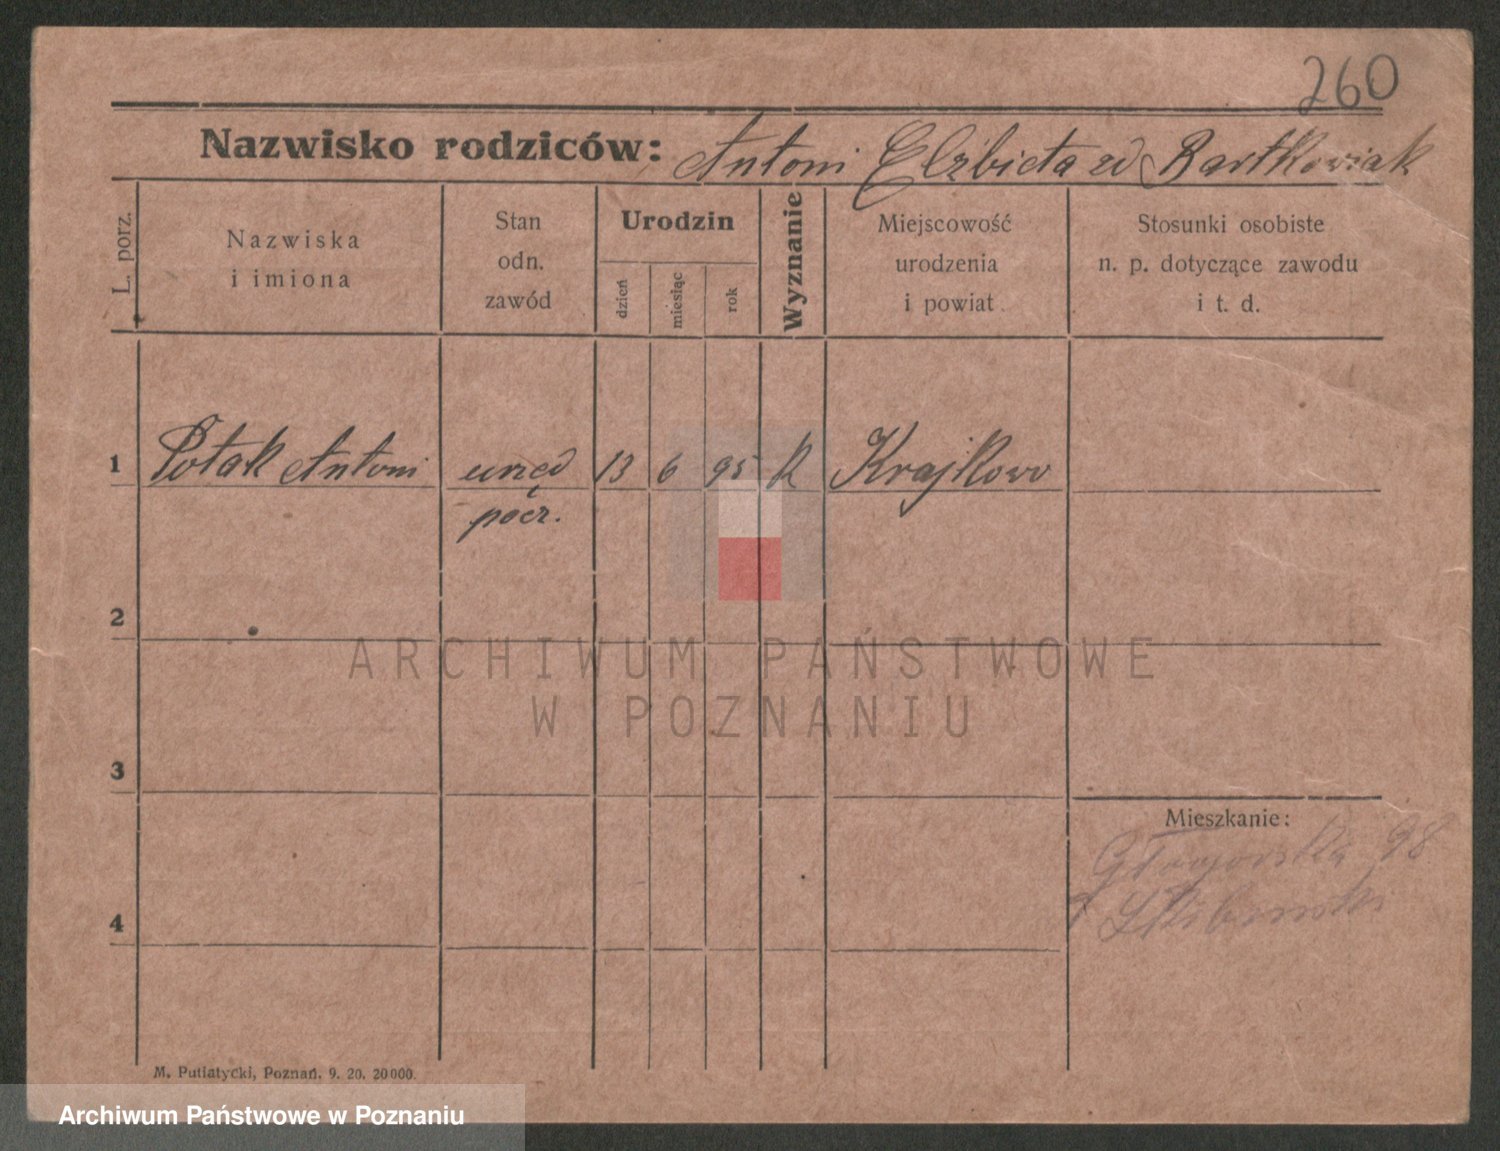 260
Nazwisko rodziców: Antoni Elżbieta zd Bartkowiak
L. porz.
Nazwiska
i imiona
Stan
odn.
zawód
Urodzin
dzień
miesiąc
rok
Wyznanie
Miejscowość
urodzenia
i powiat
Stosunki osobiste
n. p. dotyczące zawodu
i t. d.
1 Potak Antoni urzęd 13 6 95 k Krajkowo
pocz.
2
ARCHIWUM PAŃSTWOWE
W POZNANIU
3
Mieszkanie:
98
4
M. Putiatycki, Poznań. 9. 20. 20000.
Archiwum Państwowe w Poznaniu